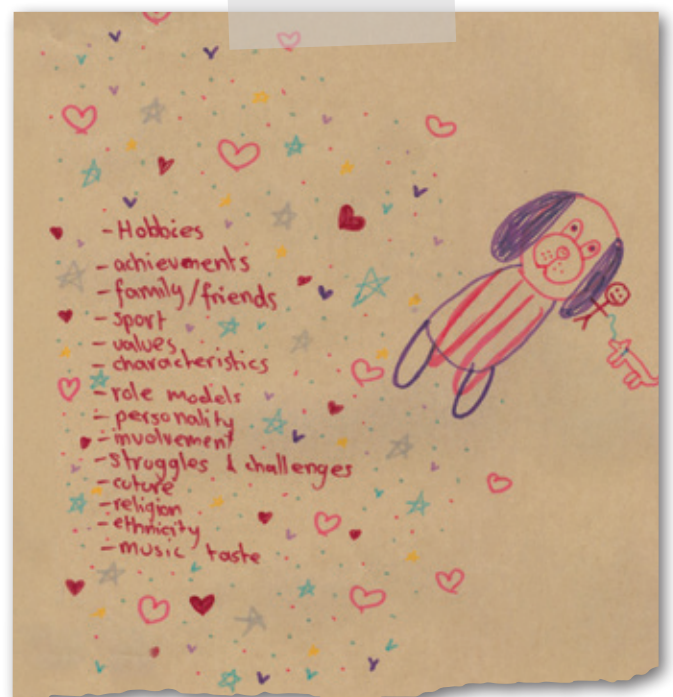 - Hobbies
- achievements
- family/friends
- sport
- values
- characteristics
- role models
- personality
- involvement
- struggles & challenges
- cuture
- religion
- ethnicity
- music taste